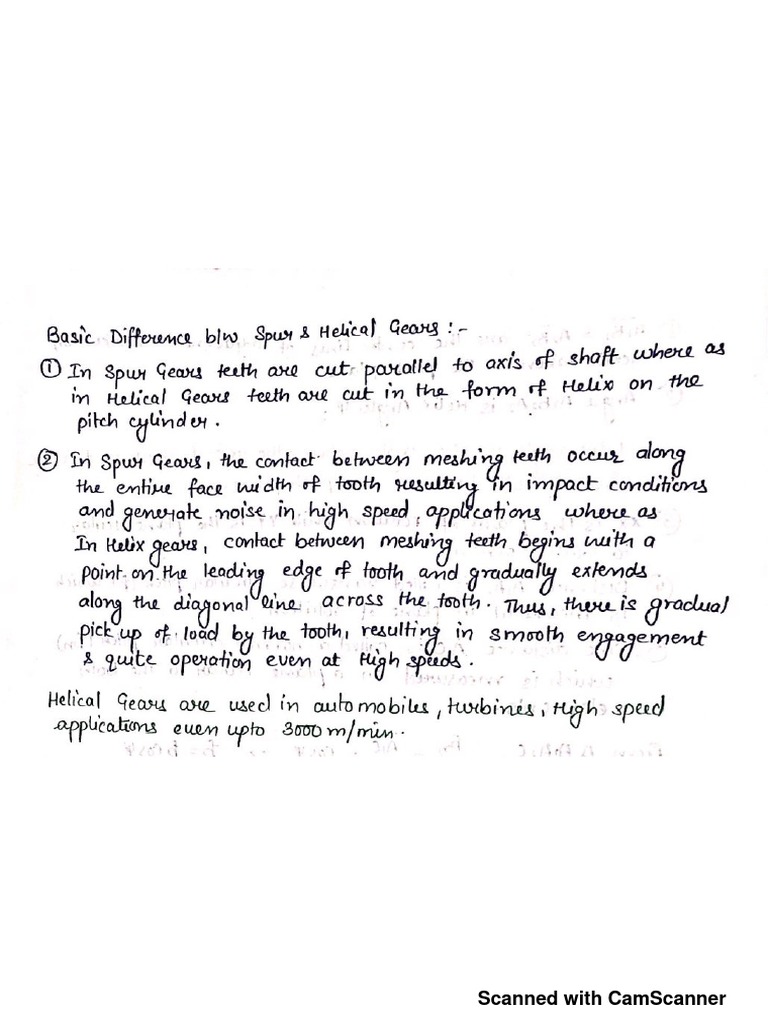 Basic Difference b/w Spur & Helical Gears :-
① In Spur Gears teeth are cut parallel to axis of shaft where as
in Helical Gears teeth are cut in the form of Helix on the
pitch cylinder.
② In Spur Gears, the contact between meshing teeth occur along
the entire face width of tooth resulting in impact conditions
and generate noise in high speed applications where as
In Helix gears, contact between meshing teeth begins with a
point on the leading edge of tooth and gradually extends
along the diagonal line across the tooth. Thus, there is gradual
pick up of load by the tooth, resulting in smooth engagement
& quite operation even at High speeds.
Helical Gears are used in automobiles, turbines, High speed
applications even upto 3000 m/min.
Scanned with CamScanner